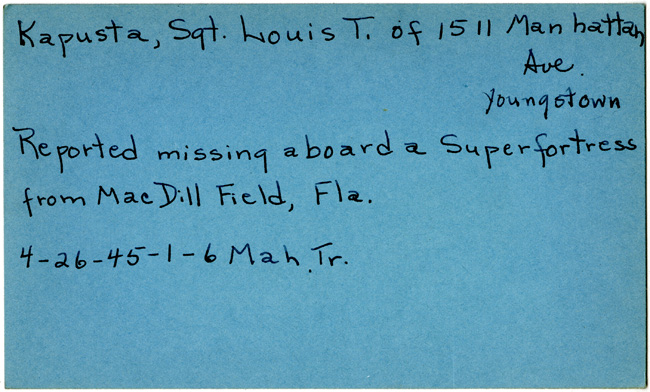 Kapusta, Sgt. Louis T. of 1511 Manhattan
Ave.
Youngstown
Reported missing aboard a Superfortress
from MacDill Field, Fla.
4-26-45-1-6 Mah. Tr.